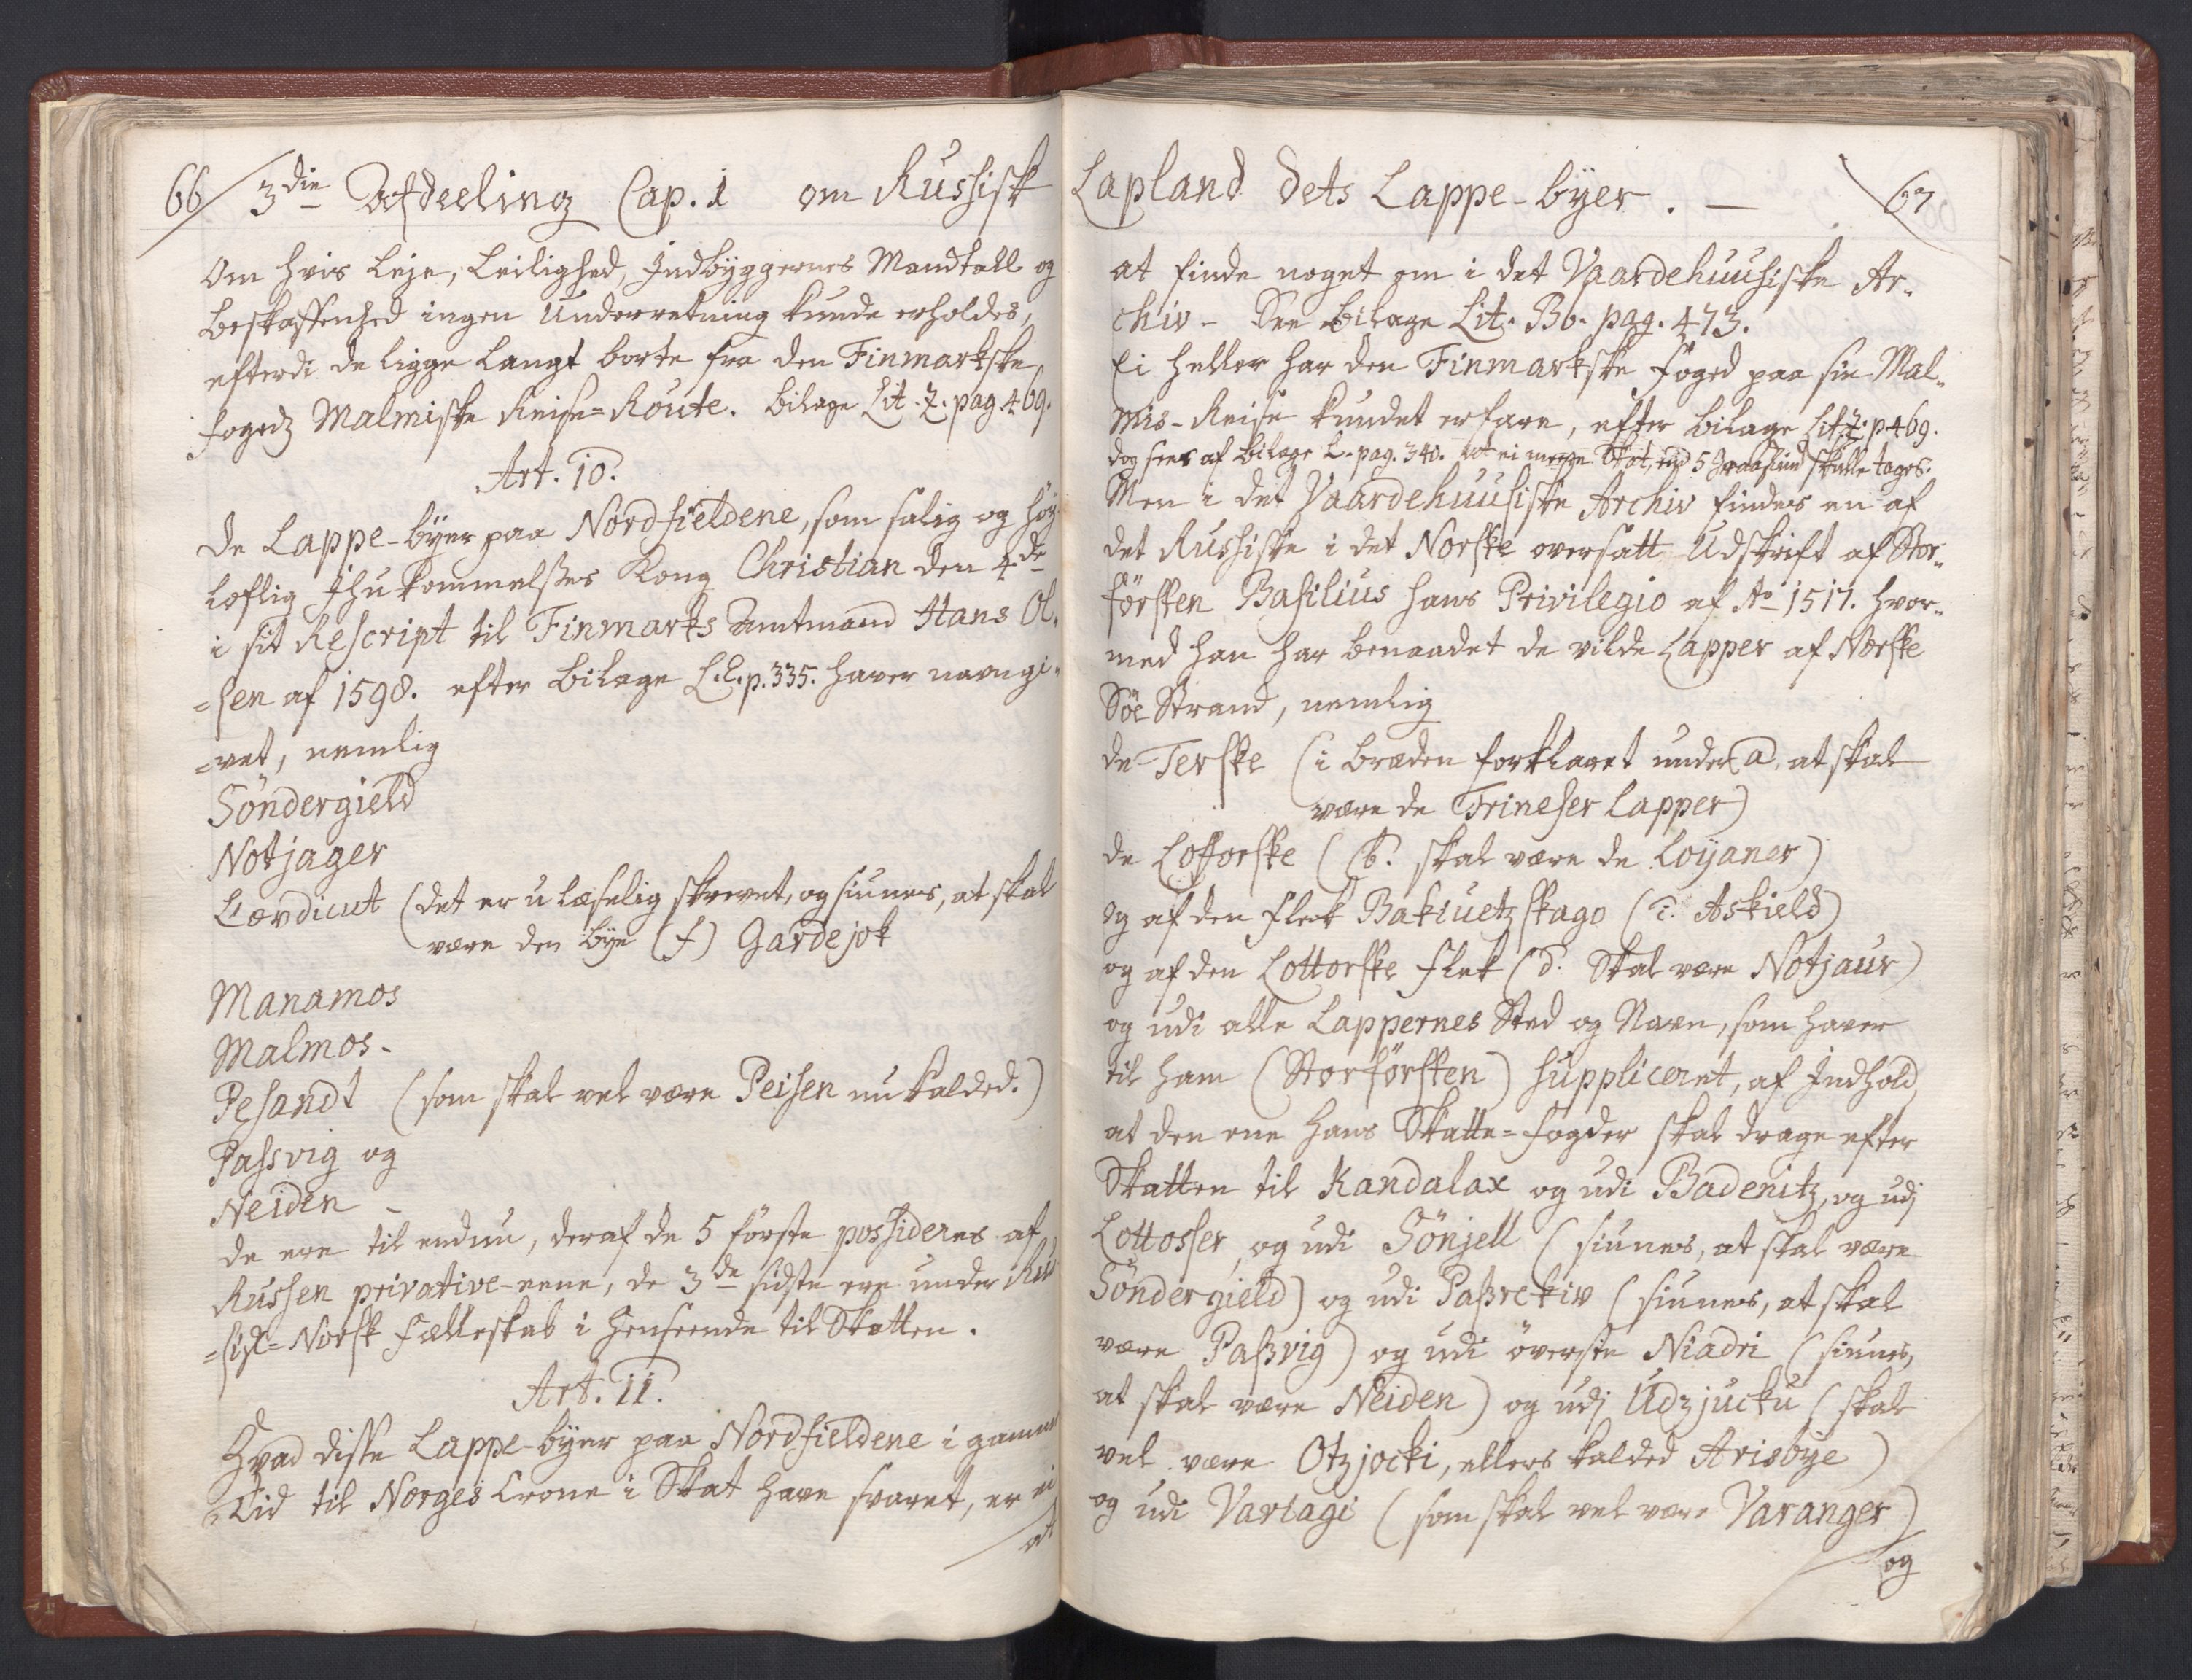 66 3die Afdeeling Cap. 1 om Russisk
Om hvis Leje, Leilighed, Indbyggernes Mandtall og
beskaffenhed ingen Underretning kunde erholdes,
efterdi de ligge langt borte fra den Finmarkske
fogedz Malmiske Reise-Route. bilage Lit. Z. pag. 469.
Art. 10.
De Lappe-byer paa Nordfieldene, som salig og höy
loflig Ihukommelßes Kong Christian den 4de
i sit Rescript til Finmarks Amtmand Hans Ol-
=sen af 1598. efter bilage L.E. p. 335. haver navngi-
=vet, nemlig
Söndergield
Notjager
Lovdicut (det er ulæselig skrevet, og siunes, at skal
være den bye (f) Gardejok
Manamos
Malmos.
Pesandt (som skal vel være Peisen nu kalded.)
Passvig og
Neiden -
de ere til endnu, deraf de 5 förste possideres af
Russen privative eene, de 3de sidste ere under Rus
=sisk-Norsk fælleskab i henseende til Skatten.
Art. 11.
Hvad disse Lappe-byer paa Nordfieldene i gammel
Tid til Norges Crone i Skat have svaret, er ei
at
Lapland dets Lappe-byer. — 67
at finde noget om i det Vaardehuusiske Ar-
chiv - See bilage Lit. Bb. pag. 473.
Ei heller har den Finmarkske foged paa sin Mal-
mis-Reise kundet erfare, efter bilage Lit. Z. p 469.
dog sees af bilage L. pag. 340. at ei meere Skat, end 5 Graaskind skulle tages.
Men i det Vaardehuusiske Archiv findes en af
det Russiske i det Norske oversatt Udskrift af Stor-
försten Basilius hans Privilegio af Ao 1517. hvor-
med han har benaadet de vilde Lapper af Norske
Söe Strand, nemlig
de Terske (i bræden forklaret under a, at skal
være de Trineser Lapper)
de Lofforske (b. skal være de Loyaner)
og af den fleck Bakiuetz skago (c. Askield)
og af den Lottorske flek (d. skal være Notjaur)
og udi alle Lappernes Sted og Navn, som haver
til ham (Storförsten) suppliceret, af Indhold
at den ene hans Skatte-fogder skal drage efter
Skatten til Kandalax og udi Badenitz, og udj
Lottosser, og udi Sönjell (siunes, at skal være
Söndergield) og udi Paßrekiv (siunes, at skal
være Paßvig) og udi överste Niadri (siunes,
at skal være Neiden) og udj Udzjucku (skal
vel være Otzjocki, ellers kalded Arisbye)
og udi Varlagi (som skal vel være Varanger)
og